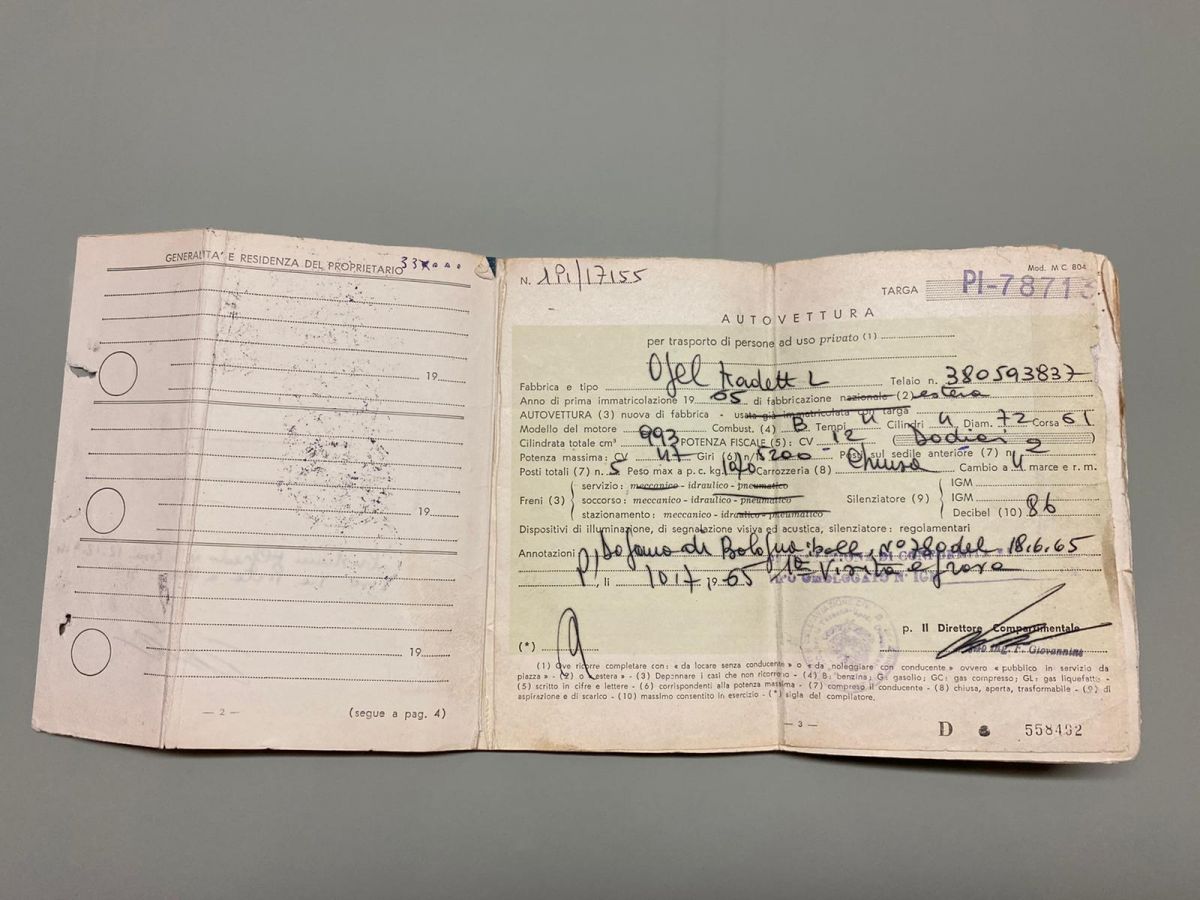 GENERALITA' E RESIDENZA DEL PROPRIETARIO
19
19
19
— 2 —
(segue a pag. 4)
N. 1PI/17155
Mod. MC 804
TARGA PI-78713
AUTOVETTURA
per trasporto di persone ad uso privato (1)
Fabbrica e tipo Opel Kadett L Telaio n. 380593837
Anno di prima immatricolazione 19 65 di fabbricazione nazionale (2) estera
AUTOVETTURA (3) nuova di fabbrica - usata già immatricolata con targa
Modello del motore Combust. (4) B Tempi 4 Cilindri 4 Diam. 72 Corsa 61
Cilindrata totale cm³ 993 POTENZA FISCALE (5): CV 12 (Dodici)
Potenza massima: CV 47 Giri (6) n/ 5200 Posti sul sedile anteriore (7) n. 2
Posti totali (7) n. 5 Peso max a p. c. kg. Carrozzeria (8) Chiusa Cambio a 4 marce e r. m.
Freni (3) servizio: meccanico - idraulico - pneumatico
soccorso: meccanico - idraulico - pneumatico
stazionamento: meccanico - idraulico - pneumatico
Silenziatore (9) IGM
IGM
Decibel (10) 86
Dispositivi di illuminazione, di segnalazione visiva ed acustica, silenziatore: regolamentari
Annotazioni Dogana di Bologna boll. N° 780 del 18.6.65
PI, li 10 17 1965 1ª Visita e prova
OMOLOGATO N°
(*)
p. Il Direttore Compartimentale
ing. F. Giovannini
(1) Ove ricorre completare con: « da locare senza conducente » o « da noleggiare con conducente » ovvero « pubblico in servizio da
piazza » - (2) o « estera » - (3) Depennare i casi che non ricorrono - (4) B: benzina; G: gasolio; GC: gas compresso; GL: gas liquefatto -
(5) scritto in cifre e lettere - (6) corrispondenti alla potenza massima - (7) compreso il conducente - (8) chiusa, aperta, trasformabile - (9) di
aspirazione e di scarico - (10) massimo consentito in esercizio - (*) sigla del compilatore.
— 3 —
D 558492